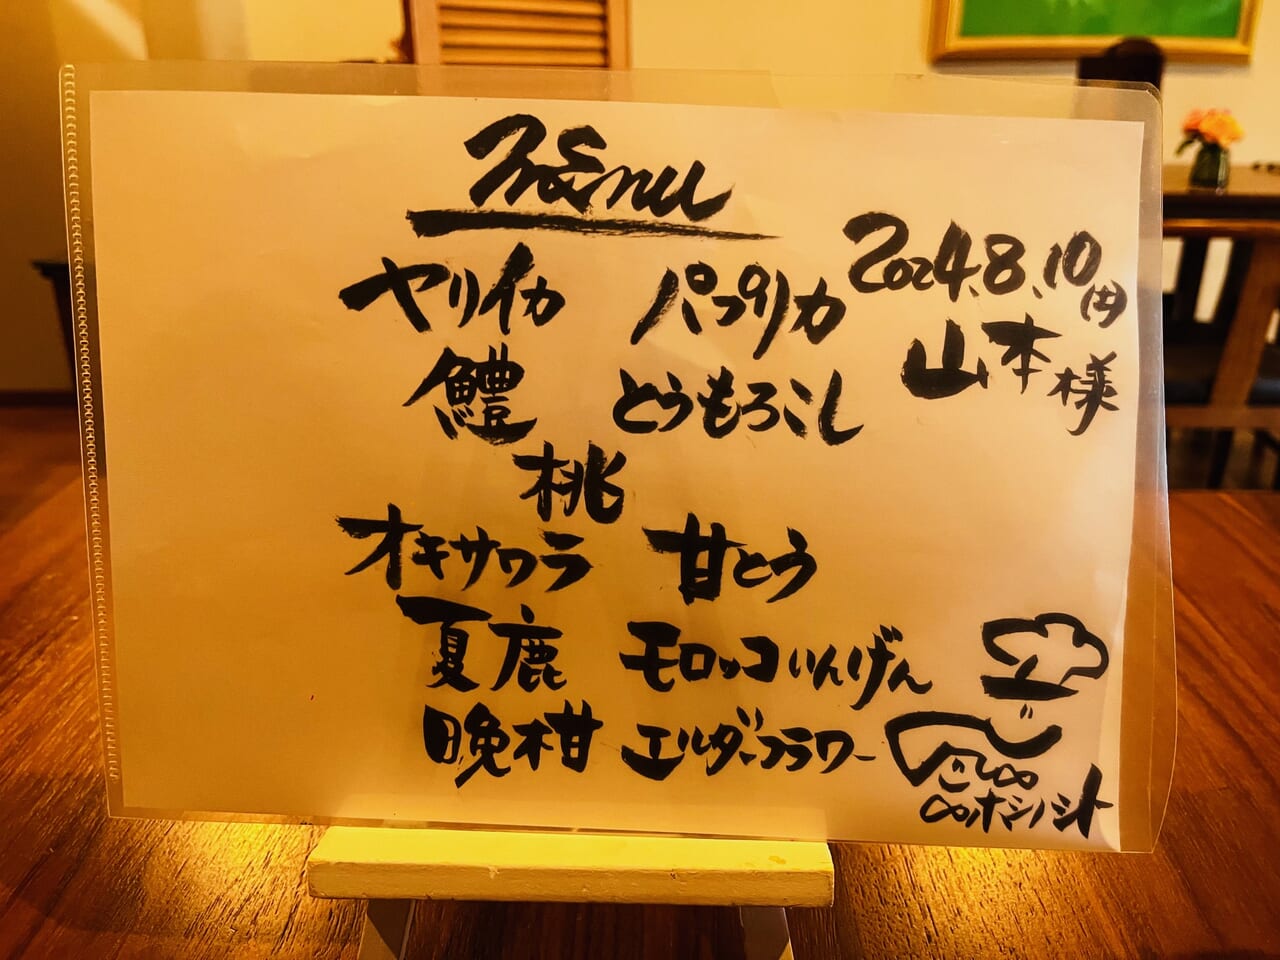 Menu
2024.8.10(土)
山本様
ヤリイカ パプリカ
鱧 とうもろこし
桃
オキサワラ 甘とう
夏鹿 モロッコいんげん
晩柑 エルダーフラワー